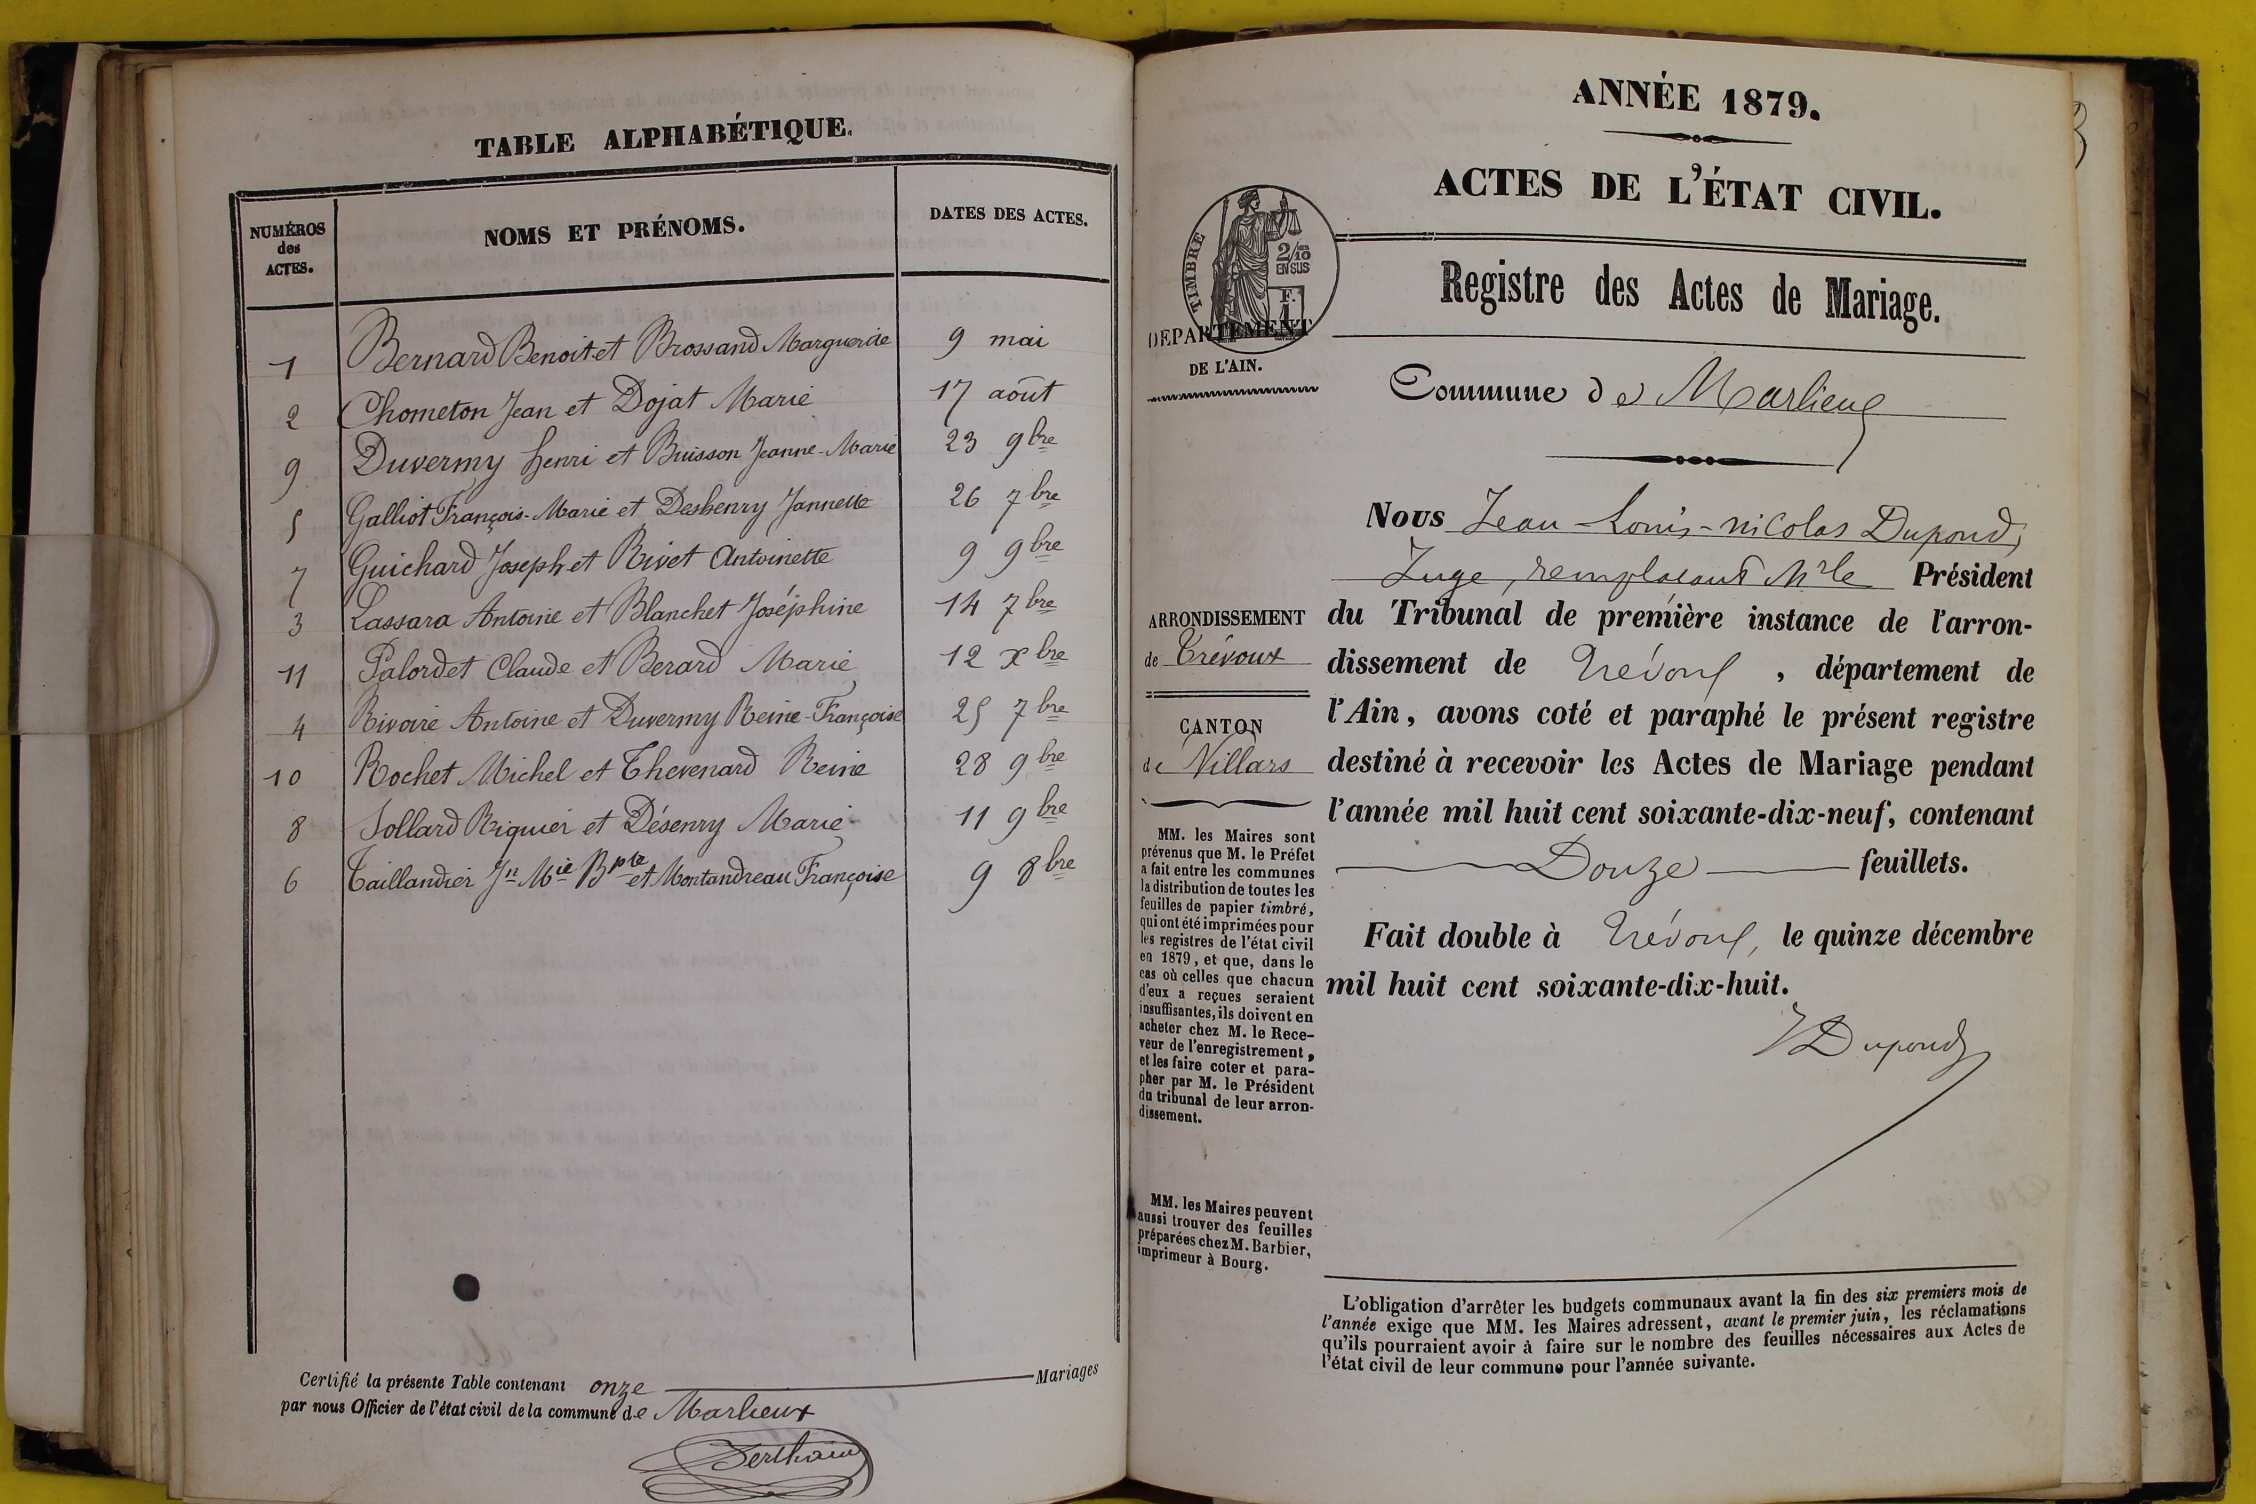 TABLE ALPHABÉTIQUE.
NUMÉROS
des
ACTES.
NOMS ET PRÉNOMS.
DATES DES ACTES.
1 Bernard Benoit et Brossand Marguerite 9 mai
2 Chometon Jean et Dojat Marie 17 août
9 Duvermy henri et Buisson Jeanne-Marie 23 9bre
5 Galliot François-Marie et Deshenry Jannette 26 7bre
7 Guichard Joseph et Rivet Antoinette 9 9bre
3 Lassara Antoine et Blanchet Joséphine 14 7bre
11 Palordet Claude et Berard Marie 12 Xbre
4 Rivoire Antoine et Duvermy Reine-Françoise 25 7bre
10 Rochet Michel et Thevenard Reine 28 9bre
8 Sollard Riquier et Désenry Marie 11 9bre
6 Taillandier Jn Mie Bpte et Montandreau Françoise 9 8bre
Certifié la présente Table contenant onze Mariages
par nous Officier de l'état civil de la commune de Marlieux
ANNÉE 1879.
ACTES DE L'ÉTAT CIVIL.
TIMBRE
2/10
EN SUS
F.
1
Registre des Actes de Mariage.
DEPARTEMENT
DE L'AIN.
Commune de Marlieux
Nous Jean-Louis-nicolas Dupond,
Juge, remplaçant Mr le Président
du Tribunal de première instance de l'arron-
dissement de Trévoux, département de
l'Ain, avons coté et paraphé le présent registre
destiné à recevoir les Actes de Mariage pendant
l'année mil huit cent soixante-dix-neuf, contenant
Douze feuillets.
Fait double à Trévoux, le quinze décembre
mil huit cent soixante-dix-huit.
Dupond
ARRONDISSEMENT
de Trévoux
CANTON
de Villars
MM. les Maires sont
prévenus que M. le Préfet
a fait entre les communes
la distribution de toutes les
feuilles de papier timbré,
qui ont été imprimées pour
les registres de l'état civil
en 1879, et que, dans le
cas où celles que chacun
d'eux a reçues seraient
insuffisantes, ils doivent en
acheter chez M. le Rece-
veur de l'enregistrement,
et les faire coter et para-
pher par M. le Président
du tribunal de leur arron-
dissement.
MM. les Maires peuvent
aussi trouver des feuilles
préparées chez M. Barbier,
imprimeur à Bourg.
L'obligation d'arrêter les budgets communaux avant la fin des six premiers mois de
l'année exige que MM. les Maires adressent, avant le premier juin, les réclamations
qu'ils pourraient avoir à faire sur le nombre des feuilles nécessaires aux Actes de
l'état civil de leur commune pour l'année suivante.